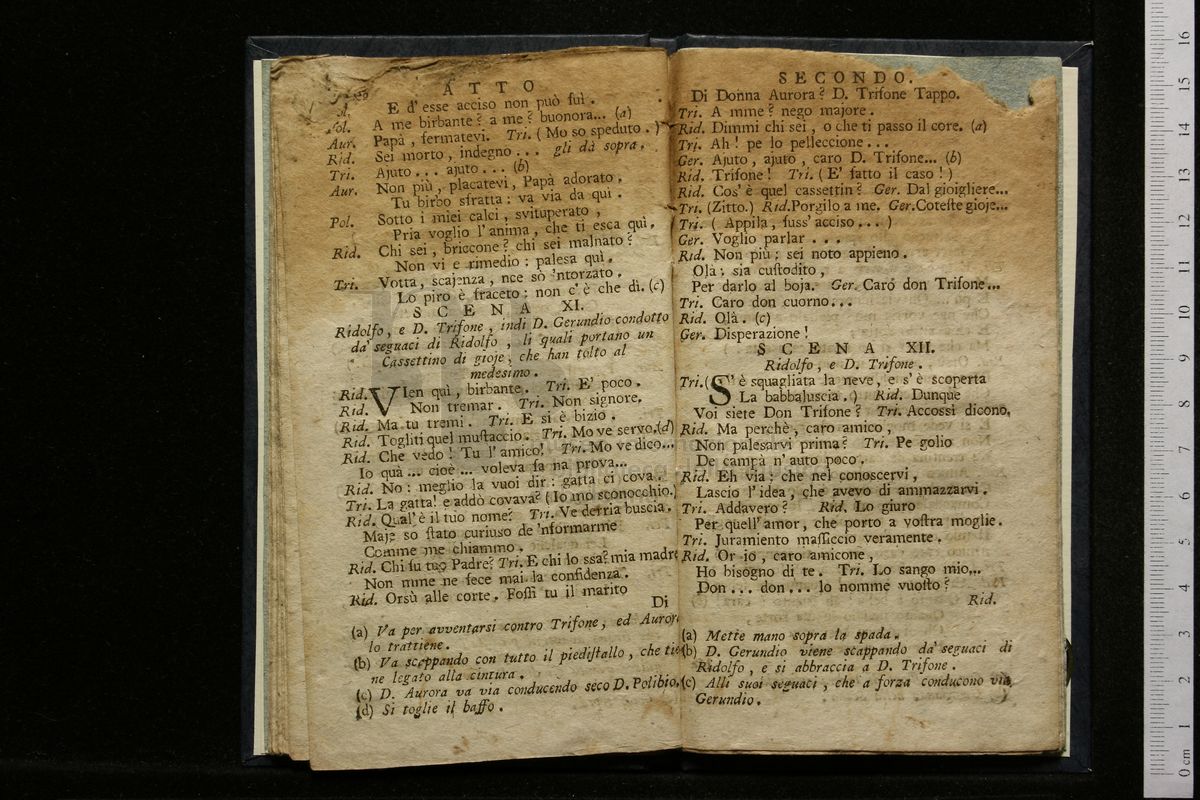 ATTO
E d' esse acciso non può fui.
Pol. A me birbante? a me? buonora... (a)
Aur. Papà, fermatevi. Tri. (Mo so speduto.)
Rid. Sei morto, indegno... gli dà sopra.
Tri. Ajuto... ajuto... (b)
Aur. Non più, placatevi, Papà adorato.
Tu birbo sfratta: va via da qui.
Pol. Sotto i miei calci, svituperato,
Pria voglio l'anima, che ti esca quì.
Rid. Chi sei, briccone? chi sei malnato?
Non vi e rimedio: palesa quì.
Tri. Votta, scajenza, nce sò 'ntorzato.
Lo piro è fraceto: non c'è che dì. (c)
SCENA XI.
Ridolfo, e D. Trifone, indi D. Gerundio condotto
da' seguaci di Ridolfo, li quali portano un
Cassettino di gioje, che han tolto al
medesimo.
Rid. VIen quì, birbante. Tri. E' poco.
Rid. Non tremar. Tri. Non signore.
Rid. Ma tu tremi. Tri. E si è bizio.
Rid. Togliti quel mustaccio. Tri. Mo ve servo. (d)
Rid. Che vedo! Tu l'amico! Tri. Mo ve dico...
Io quà... cioè... voleva fa na prova...
Rid. No: meglio la vuoi dir: gatta ci cova.
Tri. La gatta! e addò covava? (Io mo sconocchio.)
Rid. Qual' è il tuo nome? Tri. Ve derria buscia.
Maje so stato curiuso de 'nformarme
Comme me chiammo.
Rid. Chi fu tuo Padre? Tri. E chi lo ssa? mia madre
Non mme ne fece mai la confidenza.
Rid. Orsù alle corte. Fossi tu il marito
Di
(a) Va per avventarsi contro Trifone, ed Aurora
lo trattiene.
(b) Va scappando con tutto il piedistallo, che tie-
ne legato alla cintura.
(c) D. Aurora va via conducendo seco D. Polibio.
(d) Si toglie il baffo.
SECONDO.
Di Donna Aurora? D. Trifone Tappo.
Tri. A mme? nego majore.
Rid. Dimmi chi sei, o che ti passo il core. (a)
Tri. Ah! pe lo pelleccione...
Ger. Ajuto, ajuto, caro D. Trifone... (b)
Rid. Trifone! Tri. (E' fatto il caso!)
Rid. Cos' è quel cassettin? Ger. Dal gioigliere...
Tri. (Zitto.) Rid. Porgilo a me. Ger. Coteste gioje...
Tri. (Appila, fuss' acciso...)
Ger. Voglio parlar...
Rid. Non più: sei noto appieno.
Olà: sia custodito,
Per darlo al boja. Ger. Caro don Trifone...
Tri. Caro don cuorno...
Rid. Olà. (c)
Ger. Disperazione!
SCENA XII.
Ridolfo, e D. Trifone.
Tri. (S' è squagliata la neve, e s' è scoperta
La babbaluscia.) Rid. Dunque
Voi siete Don Trifone? Tri. Accossì dicono.
Rid. Ma perchè, caro amico,
Non palesarvi prima? Tri. Pe golio
De campà n' auto poco.
Rid. Eh via: che nel conoscervi,
Lascio l'idea, che avevo di ammazzarvi.
Tri. Addavero? Rid. Lo giuro
Per quell' amor, che porto a vostra moglie.
Tri. Juramiento massiccio veramente.
Rid. Or io, caro amicone,
Ho bisogno di te. Tri. Lo sango mio...
Don... don... lo nomme vuosto?
Rid.
(a) Mette mano sopra la spada.
(b) D. Gerundio viene scappando da' seguaci di
Ridolfo, e si abbraccia a D. Trifone.
(c) Alli suoi seguaci, che a forza conducono via
Gerundio.
0 cm 1 2 3 4 5 6 7 8 9 10 11 12 13 14 15 16